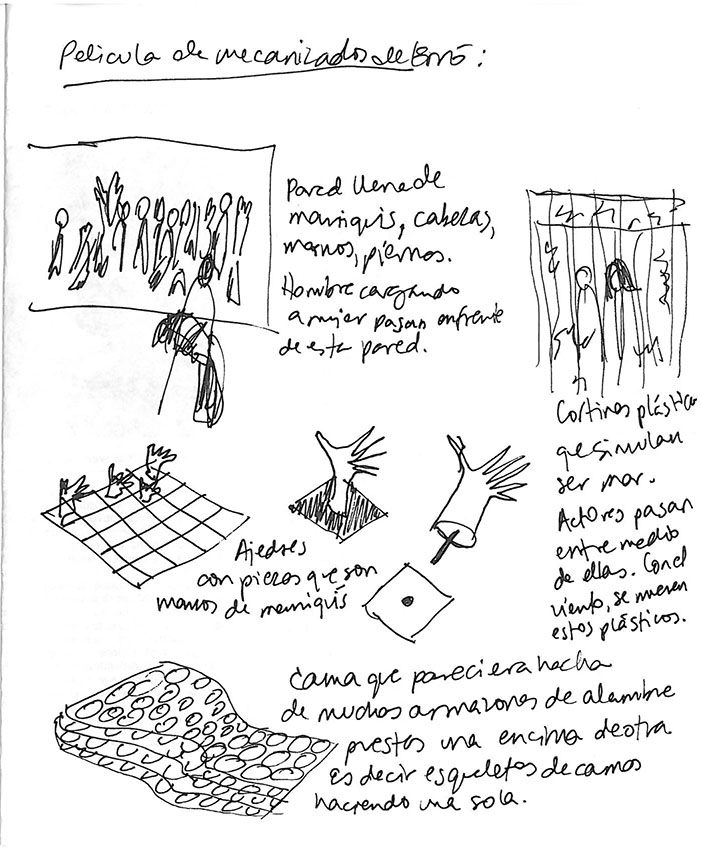 Película de mecanizados de Erró:
Pared llena de
maniquís, cabezas,
manos, piernas.
Hombre cargando
a mujer pasan enfrente
de esta pared.
Cortinas plástica
que simulan
ser mar.
Actores pasan
entre medio
de ellas. Con el
viento, se mueven
estos plásticos.
Ajedres
con piezas que son
manos de maniquís
Cama que pareciera hecha
de muchos armazones de alambre
puestos una encima de otra
Es decir esqueletos de camas
haciendo una sola.